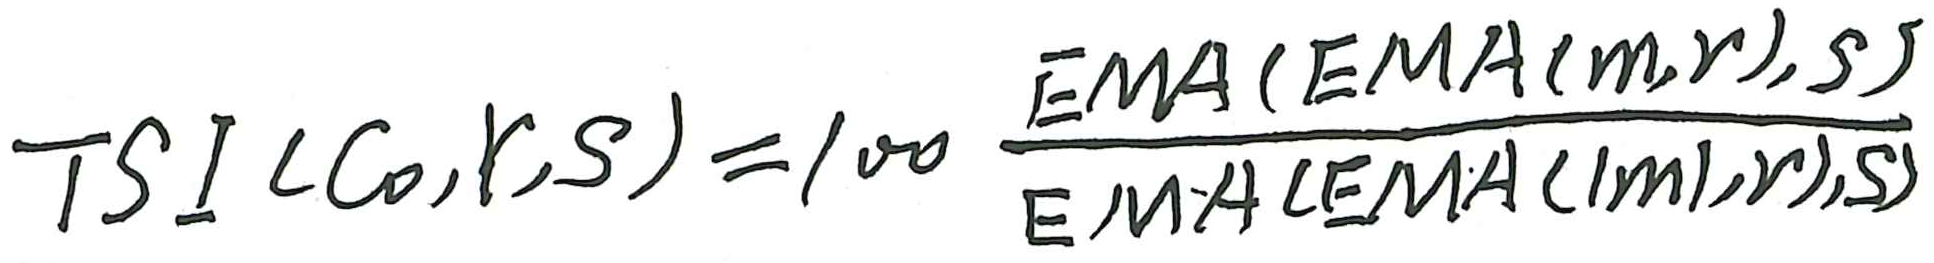 TSI(C₀,r,s)=100 \frac{EMA(EMA(m,r),s)}{EMA(EMA(|m|,r),s)}